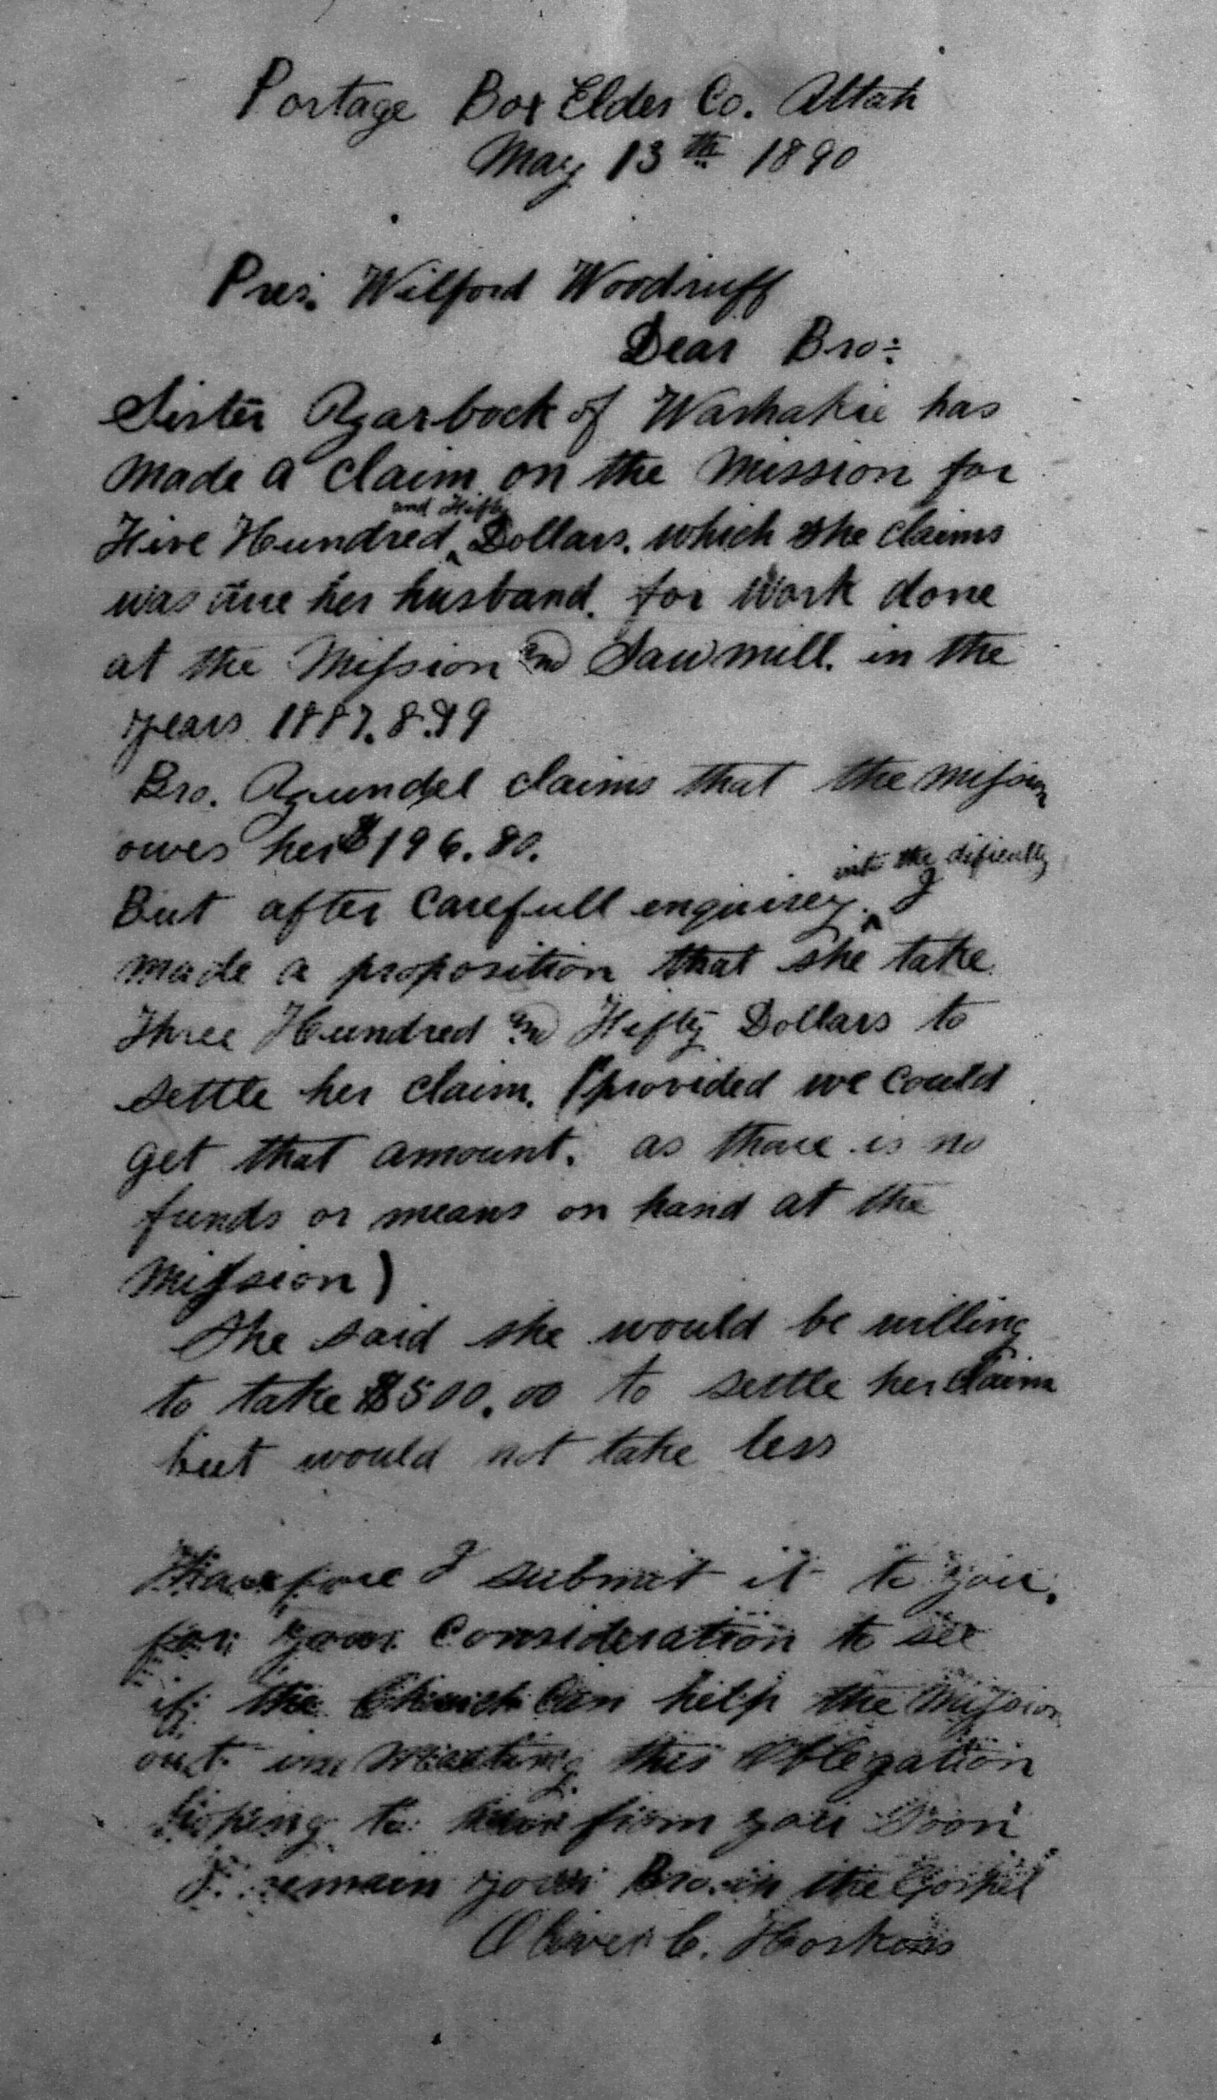 Portage Box Elder Co. Utah
May 13th 1890
Pres. Wilford Woodruff
Dear Bro:
Sister Zarbock of Washakie has
made a claim on the Mission for
and Fifty
Five Hundred ^ Dollars. which she claims
was due her husband. for work done
at the Mission and Sawmill. in the
years 1887. 8. & 9
Bro. Zundel claims that the Mission
owes her $196.80.
into the dificulty
But after carefull enquirey. ^ I
made a proposition that she take
Three Hundred and Fifty Dollars to
settle her claim. (provided we could
get that amount. as thare is no
funds or means on hand at the
Mission)
She said she would be willing
to take $500.00 to settle her claim
but would not take less
Tharefore I submit it to you.
for your consideration to see
if the Church can help the Mission
out in meeting this oblegation
hoping to hear from you soon
I remain your Bro. in the Gospel
Oliver C. Hoskins